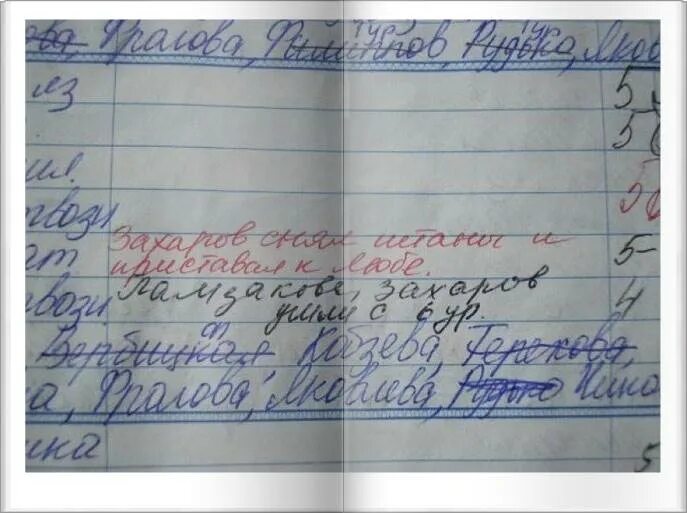 ова, Фралова, Филиппов, Рудько, Яков
яз
5
5
ил.
5
твози
Захаров снял штаны и
ат
приставал к Любе.
5-
Памзакове, Захаров
вози
4
ушли с 6 ур.
Вербицкая Кабзева, Терехова,
на, Фралова, Яковлева, Рудько Нико
ика
5